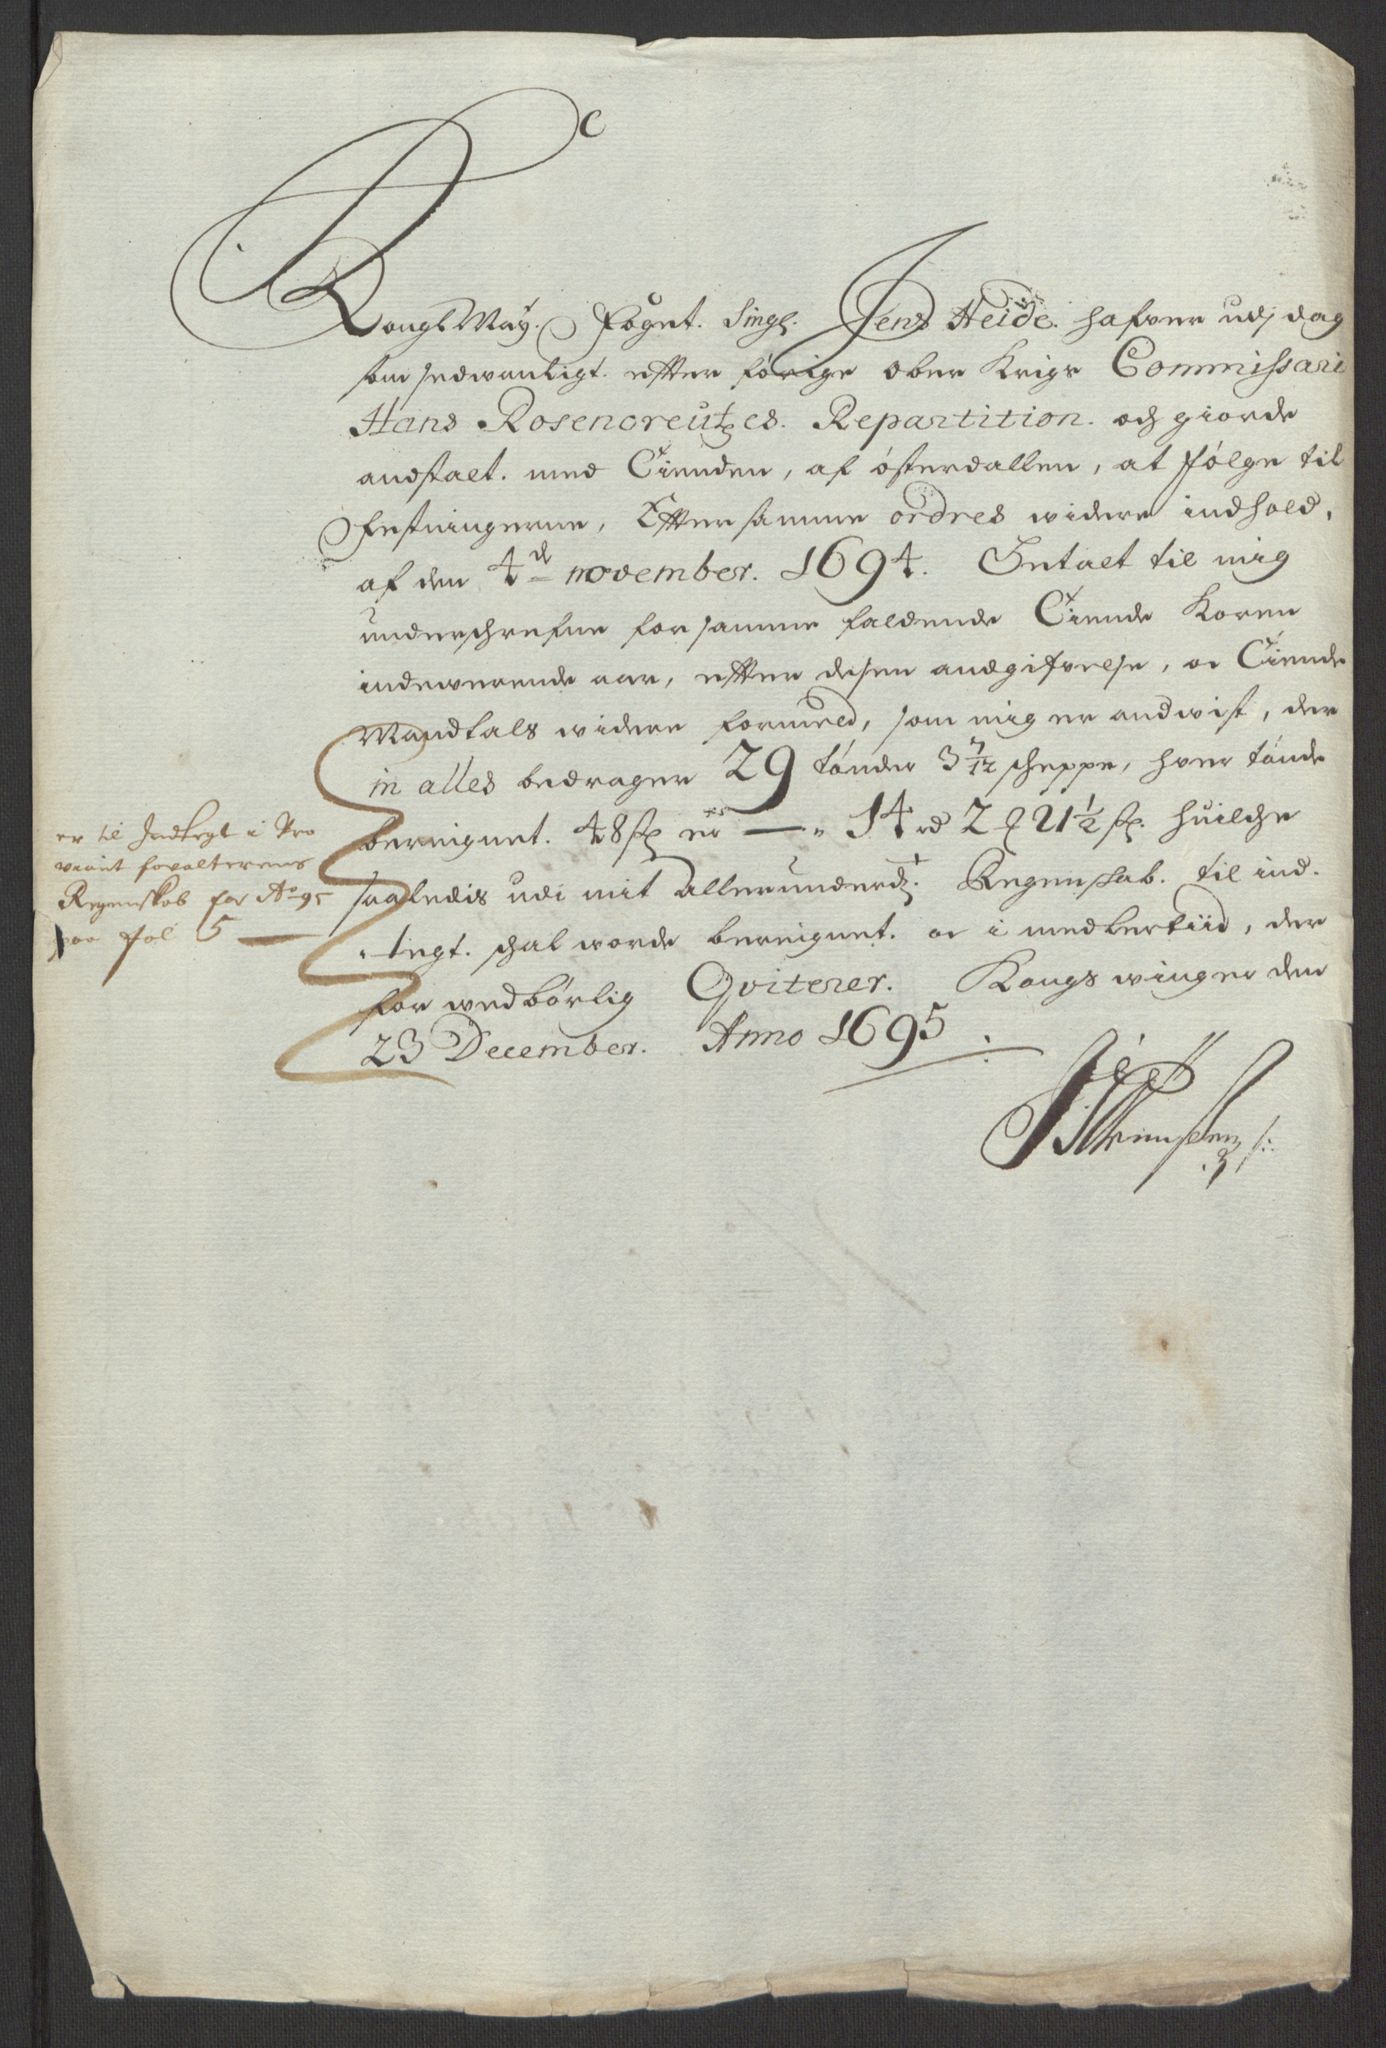 Kongl May. Foget. Singr. Jens Heide. hafver udj dag
som sedwanligt. efter forige ober Krigs Commissari
Hans Rosencreutzes. Repartition. och giorde
andstalt. med Tienden, af østerdallen, at følge til
festningerne, Efter samme ordres widere indhold,
af den 4de november. 1694. Betalt til mig
underschrefne for samme faldende Tiende Koren
indewerende aar, efter desen andgifvelse, oc Tiende
Mandtals widere formeld, som mig er andwist, der
in alles bedrager 29 tønder 3 7/12 scheppe, hver tønde
bereignet. 48 sk er — 14 rd 2 21 1/2 sk. huilche
saaledis udi mit allerunderd. Regenskab. til ind-
-tegt. schal worde bereignet. oc imidlertiid, der
for wedbørlig Qviterer. Kongswinger den
23 December. Anno 1695
er til Indtegt i Pro
viant forvalterens
Regenskab for Ao 95
paa fol 5